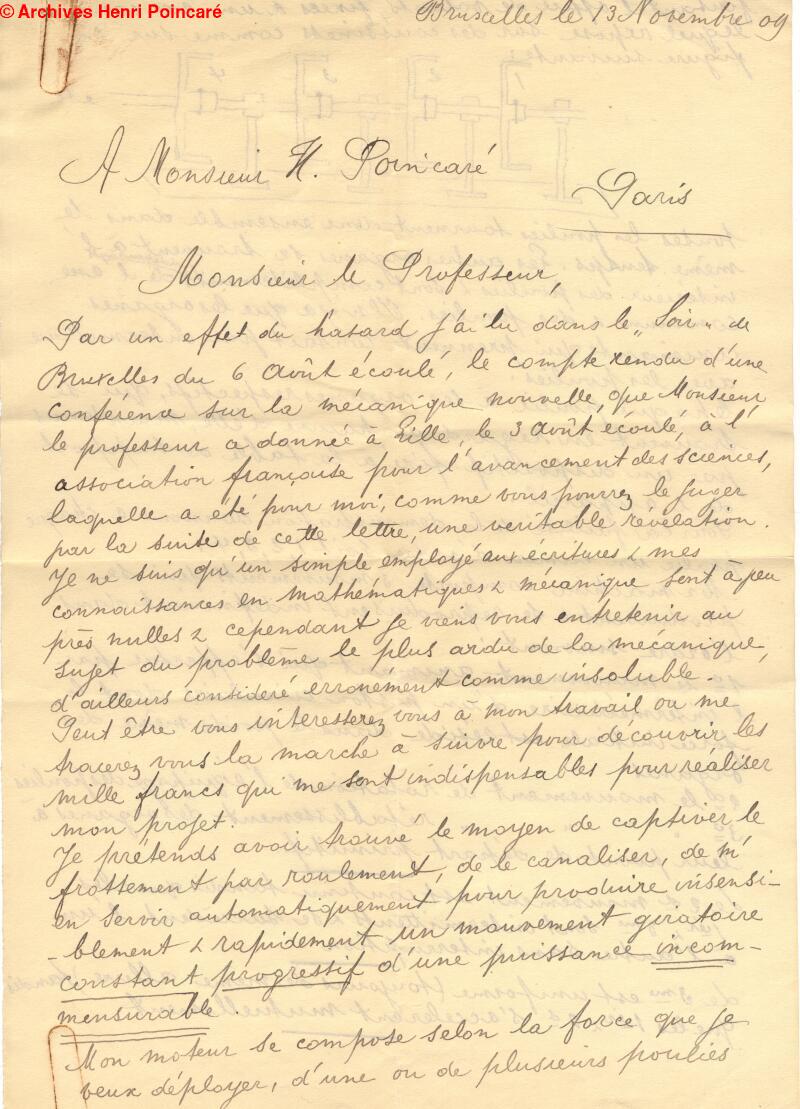 © Archives Henri Poincaré
Bruxelles le 13 Novembre 09
A Monsieur H. Poincaré
Paris
Monsieur le Professeur,
Par un effet du hasard j'ai lu dans le „Soir„ de
Bruxelles du 6 Août écoulé, le compte rendu d'une
conférence sur la mécanique nouvelle, que Monsieur
le professeur a donnée à Lille, le 3 Août écoulé, à l'
association française pour l'avancement des sciences,
laquelle a été pour moi, comme vous pourrez le juger
par la suite de cette lettre, une veritable révélation.
Je ne suis qu'un simple employé aux écritures & mes
connaissances en mathématiques & mécanique sont à peu
près nulles & cependant je viens vous entretenir au
sujet du problème le plus ardu de la mécanique,
d'ailleurs considéré erronément comme insoluble.
Peut être vous interesserez vous à mon travail ou me
tracerez vous la marche à suivre pour découvrir les
mille francs qui me sont indispensables pour réaliser
mon projet.
Je prétends avoir trouvé le moyen de captiver le
frottement par roulement, de le canaliser, de m'
en servir automatiquement pour produire insensi-
-blement & rapidement un mouvement giratoire
constant progressif d'une puissance incom-
mensurable.
Mon moteur se compose selon la force que je
veux déployer, d'une ou de plusieurs poulies